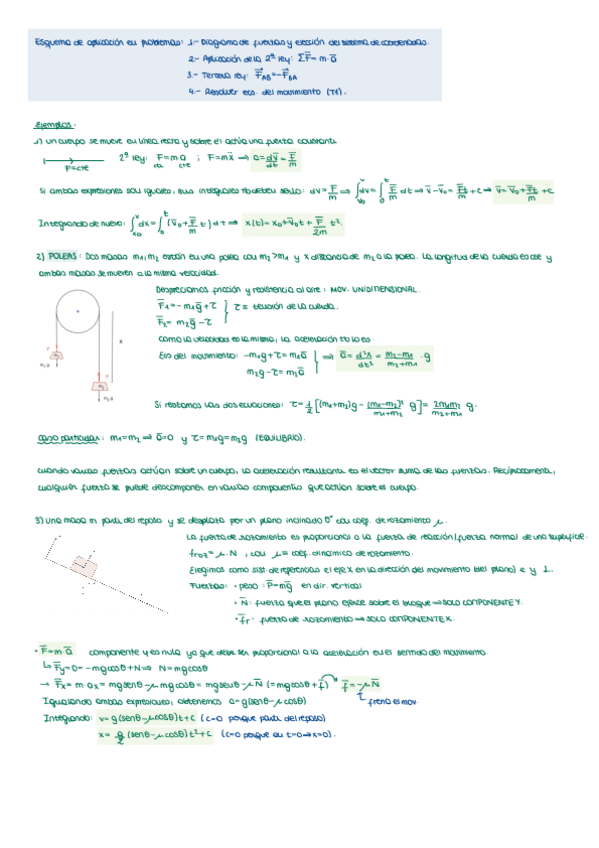 Esquema de aplicación en problemas: 1.- Diagrama de fuerzas y elección del sistema de coordenadas.
2.- Aplicación de la 2ª ley: ΣF̄ = m·ā
3.- Tercera ley: F̄AB = -F̄BA
4.- Resolver ecs. del movimiento (r(t)).
Ejemplos:
1) un cuerpo se mueve en línea recta y sobre él actúa una fuerza constante.
F=cte
2ª ley: F=m·a ; F=mẍ ⇒ a=dv̄/dt=F̄/m
cte cte
Si ambas expresiones son iguales, sus integrales tb deben serlo: dv=F̄/m ⇒ ∫dv̄=∫F̄/m dt ⇒ v̄-v̄₀=F̄t/m +c ⇒ v̄=v̄₀+F̄t/m +c
Integrando de nuevo: ∫dx=∫(v̄₀+F̄/m t)dt ⇒ x(t)=x₀+v̄₀t+F̄/2m t².
2) POLEAS: Dos masas m₁, m₂ están en una polea con m₂>m₁ y x distancia de m₂ a la polea. La longitud de la cuerda es cte y
ambas masas se mueven a la misma velocidad.
Despreciamos fricción y resistencia al aire: MOV. UNIDIMENSIONAL.
F̄₁=-m₁ḡ+τ
τ = tensión de la cuerda.
F̄₂= m₂ḡ-τ
x
Como la velocidad es la misma, la aceleración tb lo es.
Ecs del movimiento: -m₁g+τ=m₁ā
m₂g-τ=m₂ā
⇒ ā=d²x/dt²=(m₂-m₁)/(m₂+m₁)·g
Si restamos las dos ecuaciones: τ=1/2[(m₁+m₂)g-(m₁-m₂)²/(m₁+m₂) g]=2m₁m₂/(m₂+m₁) g.
caso particular: m₁=m₂ ⇒ ā=0 y τ=m₁g=m₂g (EQUILIBRIO).
Cuando varias fuerzas actúan sobre un cuerpo, la aceleración resultante es el vector suma de las fuerzas. Recíprocamente,
cualquier fuerza se puede descomponer en varias componentes que actúan sobre el cuerpo.
3) Una masa m parte del reposo y se desplaza por un plano inclinado θ° con coef. de rozamiento μ.
La fuerza de rozamiento es proporcional a la fuerza de reacción/fuerza normal de una superficie.
froz=μ·N, con μ= coef. dinámico de rozamiento.
Elegimos como sist. de referencias el eje x en la dirección del movimiento (del plano) e y ⊥.
Fuerzas: · peso: P̄=mḡ en dir. vertical
· N̄: fuerza que el plano ejerce sobre el bloque ⇒ SOLO COMPONENTE Y.
· f̄r: fuerza de rozamiento ⇒ SOLO COMPONENTE X.
· F̄=m·ā componente y es nula ya que debe ser proporcional a la aceleración en el sentido del movimiento.
↳ F̄y=0=-mgcosθ+N ⇒ N=mgcosθ
→ F̄x=m·ax=mgsenθ-μmgcosθ=mgsenθ-μN̄ (=mgcosθ+f̄) f̄=-μN̄
Igualando ambas expresiones, obtenemos a=g(senθ-μcosθ)
frena el mov.
Integrando: v=g(senθ-μcosθ)t+c (c=0 porque parte del reposo)
x=g/2(senθ-μcosθ)t²+c (c=0 porque en t=0⇒x=0).